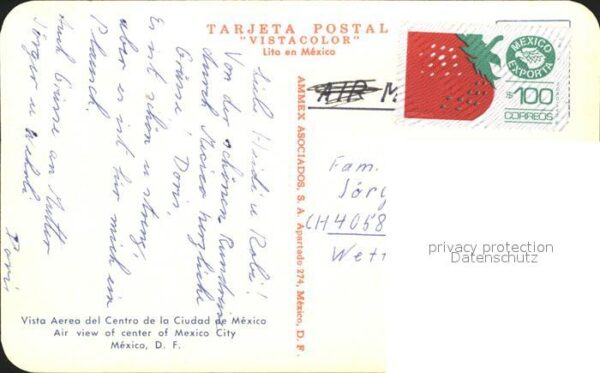 TARJETA POSTAL
"VISTACOLOR"
Lito en México
MEXICO
EXPORTA
$100
CORREOS
AIR M
AMMEX ASOCIADOS, S. A. Apartado 274, México, D. F.
Liebe Heidi u Robi!
Von der schönen Rundreise
durch Mexico herzliche
Grüsse! Doris.
Es ist schön u streng,
aber es ist für mich ein
Plausch.
Auch Grüsse an Mutter
Jörger u
Doris
Fam.
Jörg
CH4058
Wett
privacy protection
Datenschutz
Vista Aerea del Centro de la Ciudad de México
Air view of center of Mexico City
México, D. F.